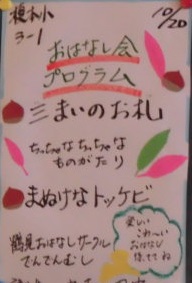 榎本小
3-1
10/20
おはなし会
プログラム
三まいのお札
ちっちゃなちっちゃな
ものがたり
まぬけなトッケビ
鶴見おはなしサークル
でんでんむし
楽しい
こわ〜い
おはなし
待っててね